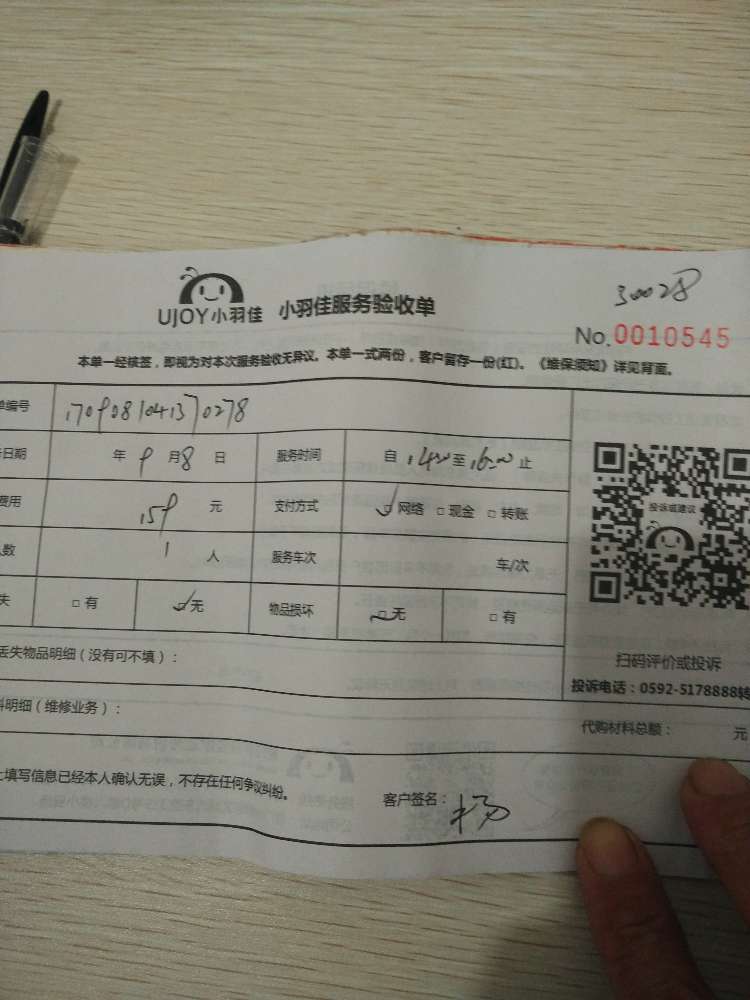 30028
UJOY小羽佳 小羽佳服务验收单
No.0010545
本单一经核签，即视为对本次服务验收无异议。本单一式两份，客户留存一份(红)。《维保须知》详见背面。
单编号 1709081041370278
日期 年 9 月 8 日 服务时间 自 14:00 至 16:00 止
费用 159 元 支付方式 ☑网络 □现金 □转账
人数 1 人 服务车次 车/次
失 □有 ☑无 物品损坏 ☑无 □有
投诉或建议
扫码评价或投诉
投诉电话：0592-5178888转
丢失物品明细（没有可不填）：
料明细（维修业务）：
代购材料总额： 元
上填写信息已经本人确认无误，不存在任何争议纠纷。
客户签名：杨